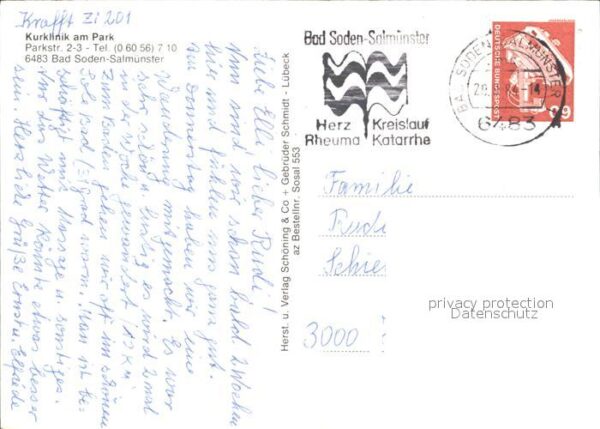 Krafft Zi 201
Kurklinik am Park
Parkstr. 2-3 - Tel. (0 60 56) 7 10
6483 Bad Soden-Salmünster
Liebe Elli, lieber Rudi!
Nun sind wir schon bald 2 Wochen
hier und fühlen uns ganz gut.
Am Donnerstag haben wir eine
Wanderung mitgemacht. Es war
sehr schön. Lustig es wird 2 mal
in der Woche gewandert 12 km
zum Baden gehen wir oft im schönen
Sol Bad (32 Grad warm. Man ist be-
schäftigt mit Massage u. sonstiges.
Nur das Wetter könnte etwas besser
sein. Herzliche Grüße Ernst u. Elfriede
Herst. u. Verlag Schöning & Co + Gebrüder Schmidt - Lübeck
az Bestellnr. Sosal 553
Bad Soden-Salmünster
Herz Kreislauf
Rheuma Katarrhe
BAD SODEN-SALMÜNSTER
6483
DEUTSCHE BUNDESPOST
60
Familie
Rudi
Schie
3000
privacy protection
Datenschutz